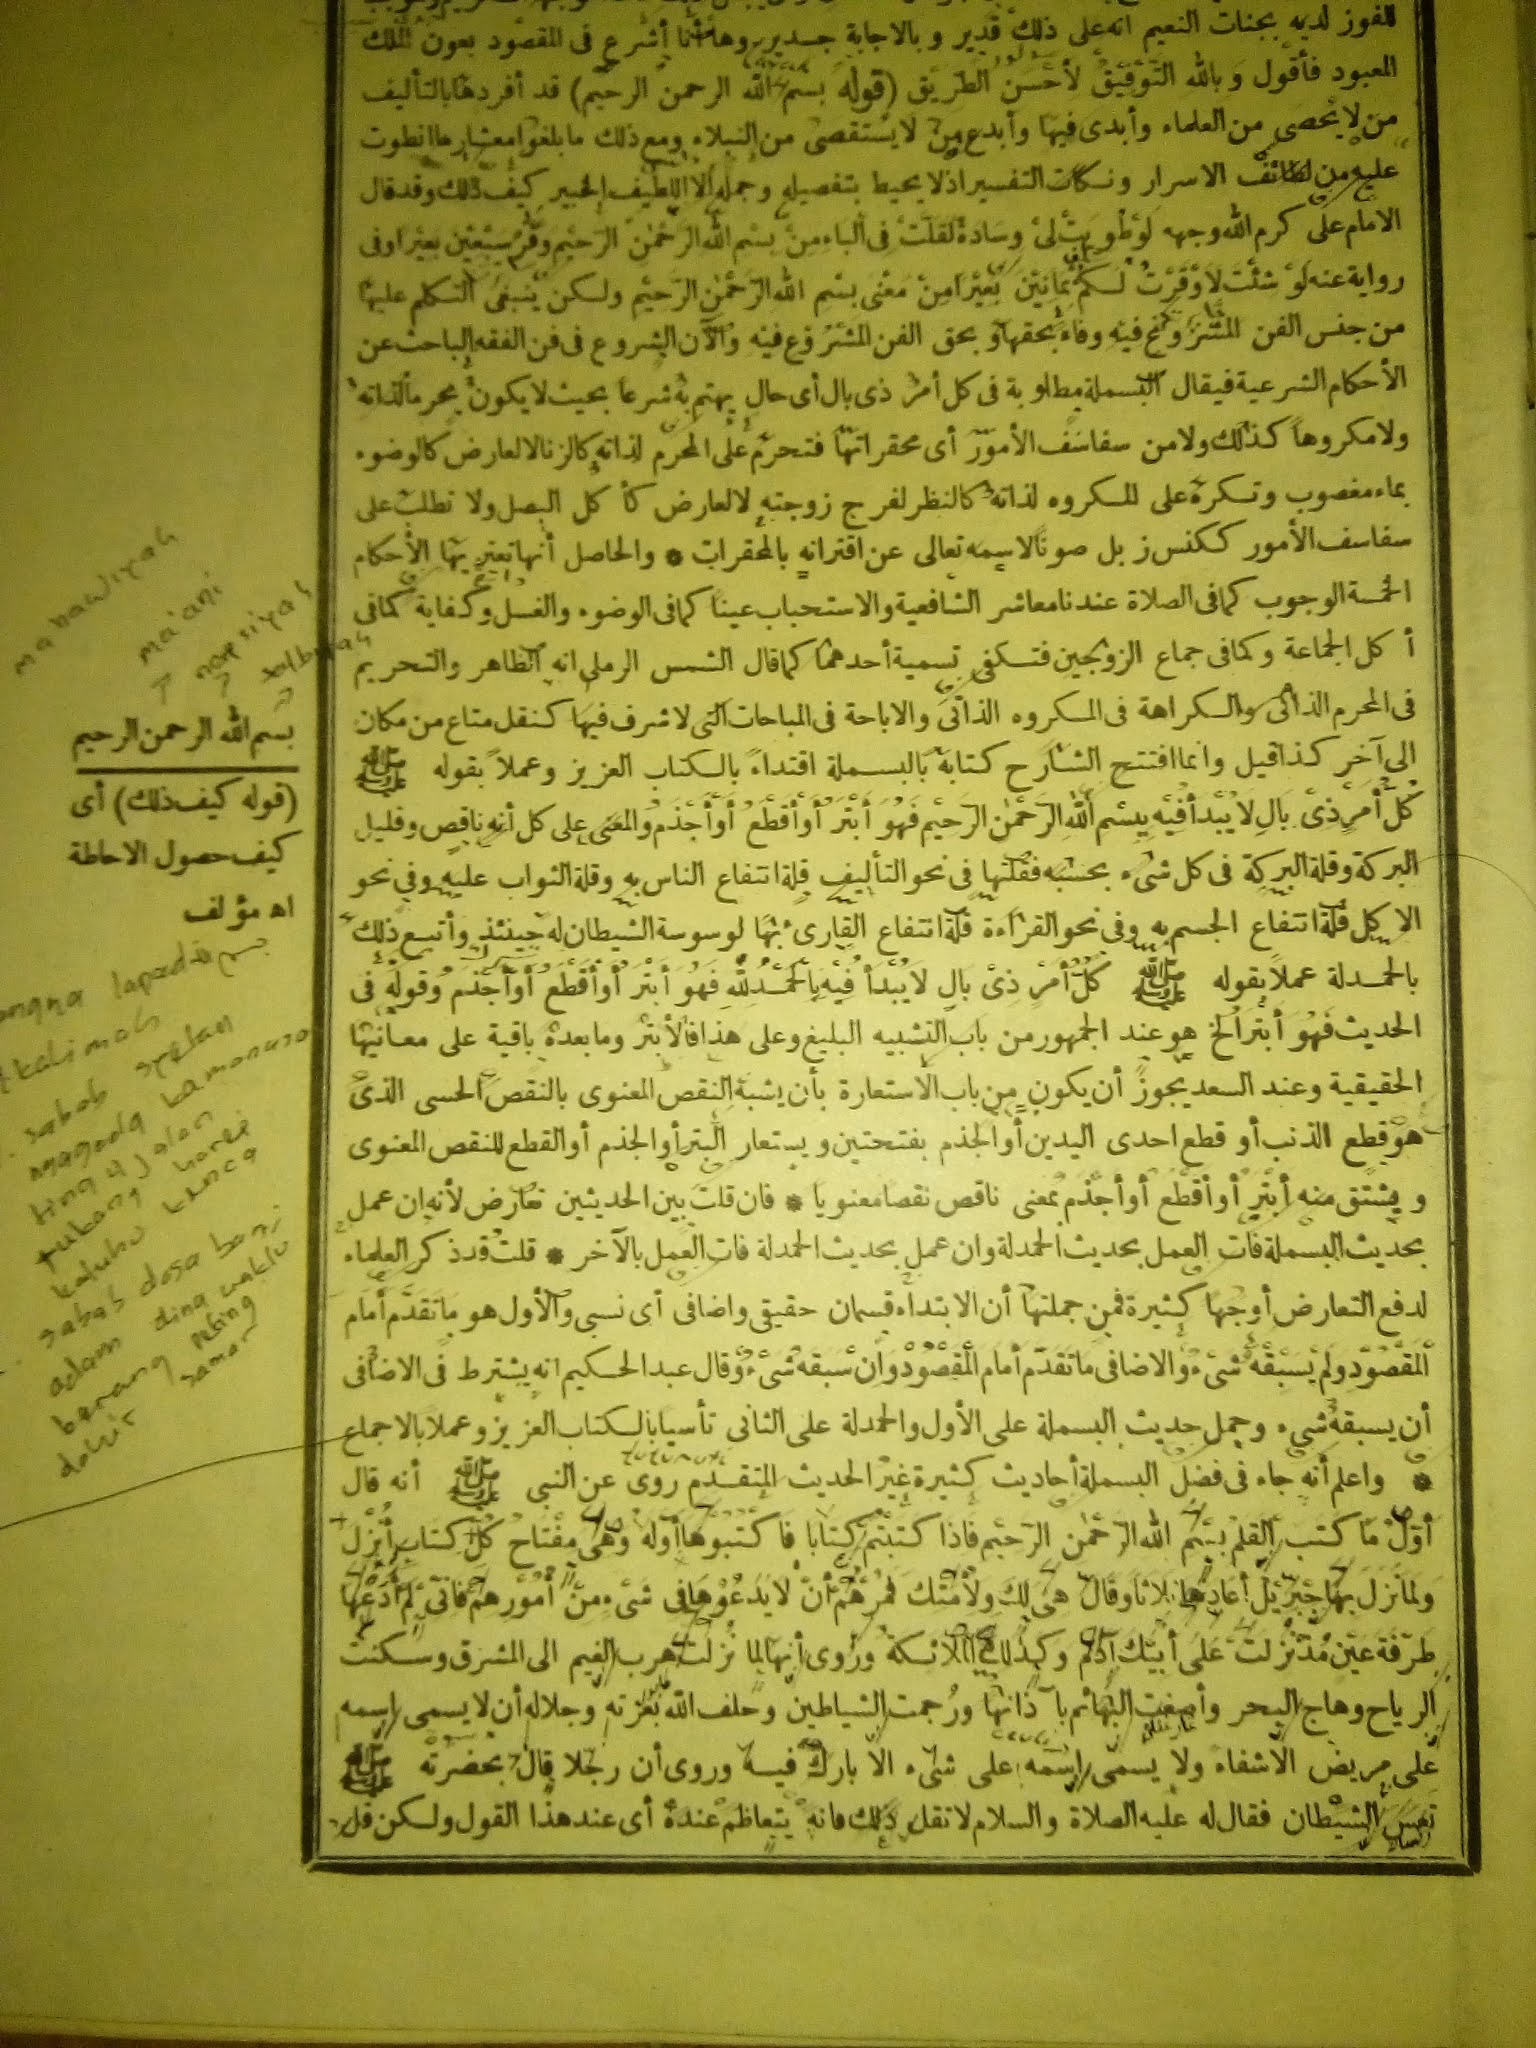 للفوز لديه بجنات النعيم انه على ذلك قدير وبالاجابة جدير وها أنا أشرع فى المقصود بعون الملك
المعبود فأقول وَبالله التَّوْفِيْقُ لِأَحْسَنِ الطَّرِيْق (قوله بسم الله الرحمن الرحيم) قد أفردها بالتأليف
من لا يحصى من العلماء وأبدى فيها وأبدع من لا يستقصى من النبلاء ومع ذلك ما بلغوا معشار ما انطوت
عليه من لطائف الاسرار ونكات التفسير اذ لا يحيط بتفصيله وجمله إلا اللطيف الخبير كيف ذلك وقد قال
الامام على كرم الله وجهه لَوْ طُوِيَتْ لِىْ وِسَادَةٌ لَقُلْتُ فِى الْبَاءِ مِنْ بِسْمِ اللهِ الرَّحْمٰنِ الرَّحِيْمِ وِقْرَ سَبْعِيْنَ بَعِيْرًا وفى
رواية عنه لَوْ شِئْتُ لَأَوْقَرْتُ لَكُمْ ثَمَانِيْنَ بَعِيْرًا مِنْ مَعْنَى بِسْمِ اللهِ الرَّحْمٰنِ الرَّحِيْمِ ولكن يَنبغى التكلم عليها
من جنس الفن المشروع فيه وفاء بحقها وبحق الفن المشروع فيه والآن الشروع فى فن الفقه الباحث عن
الأحكام الشرعية فيقال البسملة مطلوبة فى كل أمر ذى بال أى حال يهتم به شرعا بحيث لا يكون محرما لذاته
ولا مكروها كذلك ولا من سفاسف الأمور أى محقراتها فتحرم على المحرم لذاته كالزنا لا لعارض كالوضوء
بماء مغصوب وتكره على المكروه لذاته كالنظر لفرج زوجته لا لعارض كأكل البصل ولا تطلب على
سفاسف الأمور ككنس زبل صونا لاسمه تعالى عن اقترانه بالمحقرات * والحاصل أنها تعتريها الأحكام
الخمسة الوجوب كما فى الصلاة عندنا معاشر الشافعية والاستحباب عينا كما فى الوضوء والغسل وكفاية كما فى
أكل الجماعة وكما فى جماع الزوجين فتكفى تسمية أحدهما كما قال الشمس الرملى انه الظاهر والتحريم
فى المحرم الذاتى والكراهة فى المكروه الذاتى والاباحة فى المباحات التى لا شرف فيها كنقل متاع من مكان
الى آخر كذا قيل وانما افتتح الشارح كتابه بالبسملة اقتداءً بالكتاب العزيز وعملاً بقوله ﷺ
كُلُّ أَمْرٍ ذِىْ بَالٍ لَا يُبْدَأُ فِيْهِ بِبِسْمِ اللهِ الرَّحْمٰنِ الرَّحِيْمِ فَهُوَ أَبْتَرُ أَوْ أَقْطَعُ أَوْ أَجْذَمُ والمعنى على كل أنه ناقص وقليل
البركة وقلة البركة فى كل شىء بحسبه فقلتها فى نحو التأليف قلة انتفاع الناس به وقلة الثواب عليه وفى نحو
الاكل قلة انتفاع الجسم به وفى نحو القراءة قلة انتفاع القارئ بها لوسوسة الشيطان له حينئذ وأتبع ذلك
بالحمدلة عملا بقوله ﷺ كُلُّ أَمْرٍ ذِىْ بَالٍ لَا يُبْدَأُ فِيْهِ بِالْحَمْدُ لِلّٰهِ فَهُوَ أَبْتَرُ أَوْ أَقْطَعُ أَوْ أَجْذَمُ وقوله فى
الحديث فَهُوَ أَبْتَرُ الخ هو عند الجمهور من باب التشبيه البليغ وعلى هذا فالأبتر وما بعده باقية على معانيها
الحقيقية وعند السعد يجوز أن يكون من باب الاستعارة بأن يشبه النقص المعنوى بالنقص الحسى الذى
هو قطع الذنب أو قطع احدى اليدين أو الجذم بفتحتين ويستعار البتر أو الجذم أو القطع للنقص المعنوى
ويشتق منه أبتر أو أقطع أو أجذم بمعنى ناقص نقصا معنويا * فان قلت بين الحديثين تعارض لأنه ان عمل
بحديث البسملة فات العمل بحديث الحمدلة وان عمل بحديث الحمدلة فات العمل بالآخر * قلت قد ذكر العلماء
لدفع التعارض أوجها كثيرة فمن جملتها أن الابتداء قسمان حقيقى واضافى أى نسبى والأول هو ما تقدم أمام
المَقْصُوْدِ وَلَمْ يَسْبِقْهُ شَىْءٌ والاضافى ما تقدم أمام المقصود وان سبقه شىء وقال عبد الحكيم انه يشترط فى الاضافى
أن يسبقه شىء وحمل حديث البسملة على الأول والحمدلة على الثانى تأسيا بالكتاب العزيز وعملا بالاجماع
* واعلم أنه جاء فى فضل البسملة أحاديث كثيرة غير الحديث المتقدم روى عن النبى ﷺ أنه قال
أوّلُ مَا كَتَبَ القَلَمُ بِسْمِ اللهِ الرَّحْمٰنِ الرَّحِيْمِ فَاذَا كَتَبْتُمْ كِتَابًا فَاكْتُبُوْهَا أَوَّلَهُ وَهِىَ مِفْتَاحُ كُلِّ كِتَابٍ أُنْزِلَ
وَلَمَّا نَزَلَ بِهَا جِبْرِيْلُ أَعَادَهَا ثَلَاثًا وَقَالَ هِىَ لَكَ وَلِأُمَّتِكَ فَمُرْهُمْ أَنْ لَا يَدَعُوْهَا فِى شَىْءٍ مِنْ أُمُوْرِهِمْ فَانِّىْ لَمْ أَدَعْهَا
طَرْفَةَ عَيْنٍ مُذْ نَزَلَتْ عَلَى أَبِيْكَ آدَمَ وَكَذَا الملائكة وروى أنها لما نزلت هرب الغيم الى المشرق وسكنت
الرياح وهاج البحر وأصغت البهائم بآذانها ورجمت الشياطين وحلف الله بعزته وجلاله أن لا يسمى اسمه
على مريض الا شفاه ولا يسمى اسمه على شىء الا بارك فيه وروى أن رجلا قال بحضرته ﷺ
تعس الشيطان فقال له عليه الصلاة والسلام لا تقل ذلك فانه يتعاظم عنده أى عند هذا القول ولكن قل
manawiyah
ma'ani
بسم الله الرحمن الرحيم
(قوله كيف ذلك) أى
كيف حصول الاحاطة
اه مؤلف
lapadz بسم
kalimah
sabab
sabab dosa
adam dina waktu
barang